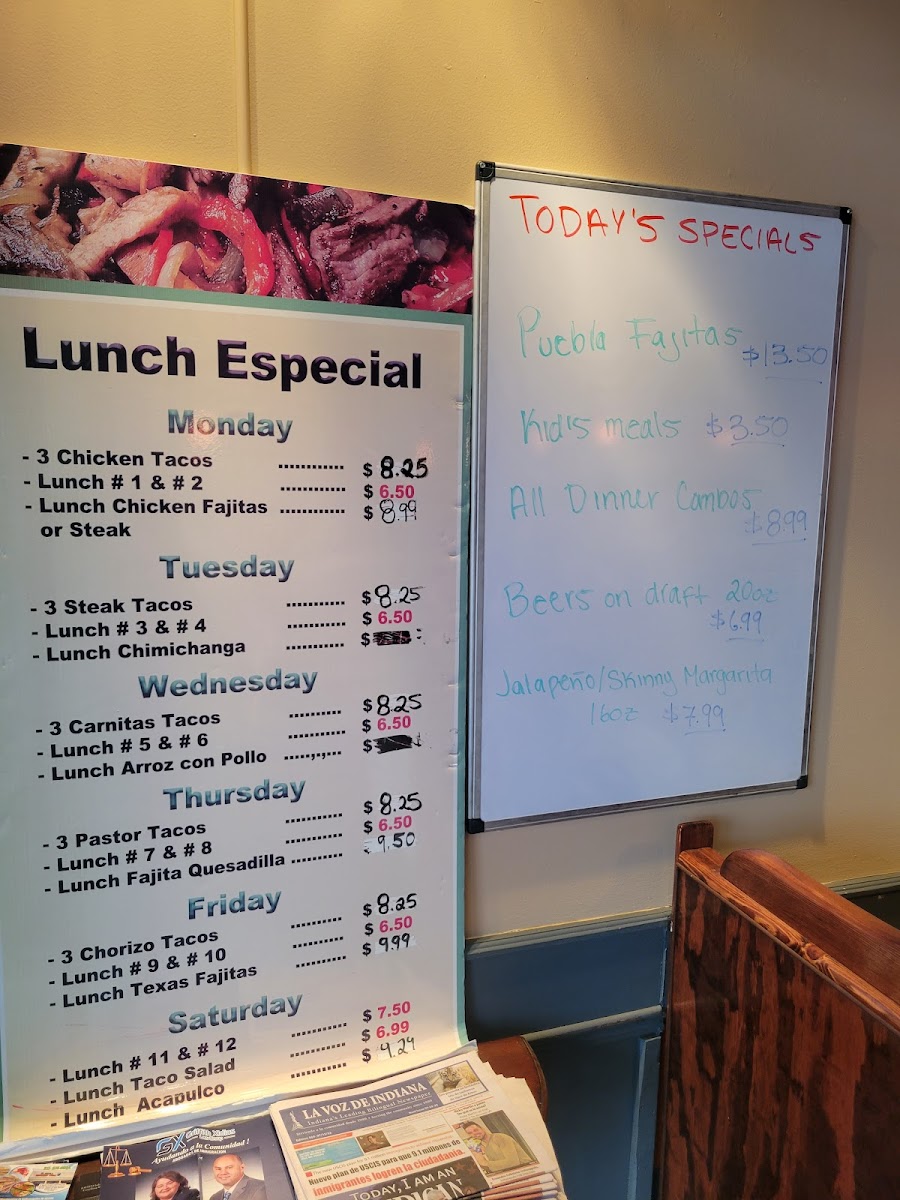 Lunch Especial
Monday
- 3 Chicken Tacos ............ $ 8.25
- Lunch # 1 & # 2 ............ $ 6.50
- Lunch Chicken Fajitas ............ $ 8.99
or Steak
Tuesday
- 3 Steak Tacos ............ $ 8.25
- Lunch # 3 & # 4 ............ $ 6.50
- Lunch Chimichanga ............ $
Wednesday
- 3 Carnitas Tacos ........... $ 8.25
- Lunch # 5 & # 6 ........... $ 6.50
- Lunch Arroz con Pollo .....,,,... $
Thursday
- 3 Pastor Tacos ............ $ 8.25
- Lunch # 7 & # 8 ............ $ 6.50
- Lunch Fajita Quesadilla ........... 9.50
Friday
- 3 Chorizo Tacos ........... $ 8.25
- Lunch # 9 & # 10 ........... $ 6.50
- Lunch Texas Fajitas ........... $ 9.99
Saturday
- Lunch # 11 & # 12 ............ $ 7.50
- Lunch Taco Salad ............ $ 6.99
- Lunch Acapulco ............ $
TODAY'S SPECIALS
Puebla Fajitas $13.50
Kid's meals $3.50
All Dinner Combos $8.99
Beers on draft 20oz $6.99
Jalapeño/Skinny Margarita
16oz $7.99
LA VOZ DE INDIANA
Indiana's Leading Bilingual Newspaper
Nuevo plan de USCIS para que 9.1 millones de
inmigrantes logren la ciudadanía.
TODAY, I AM
Ayudando a la Comunidad !